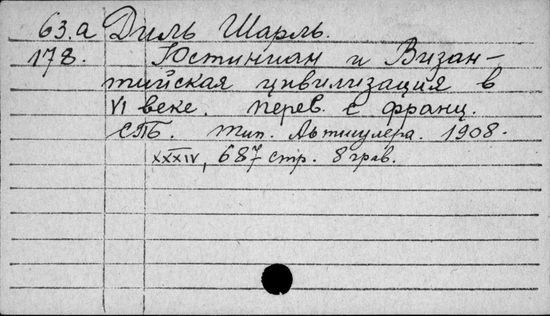 63.а Диль Шарль.
178. Юстиниан и Визан-
тийская цивилизация в
VI веке. перев. с франц.
СПБ. тип. Альтшулера. 1908.
XXXIV, 687 стр. 8 грав.